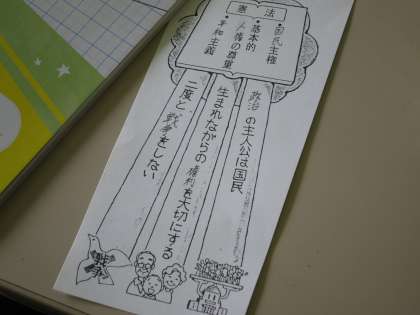 憲法
・国民主権
・基本的
人権の尊重
・平和主義
政治の主人公は国民
生まれながらの権利を大切にする
二度と戦争をしない
戦争